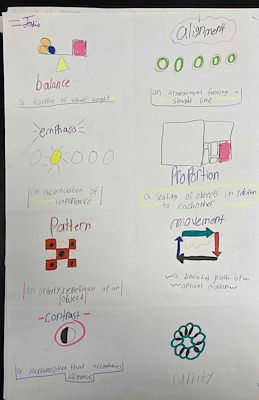 Josie
balance
a ... of visual weight
alignment
an arrangement forming a
straight line
emphasis
an accentuation of
importance
Proportion
a scaling of objects in relation
to eachother
Pattern
an orderly repetition of an
object
movement
a ... path of
optical motion
Contrast
a juxtaposition that accentuates
difference
unity